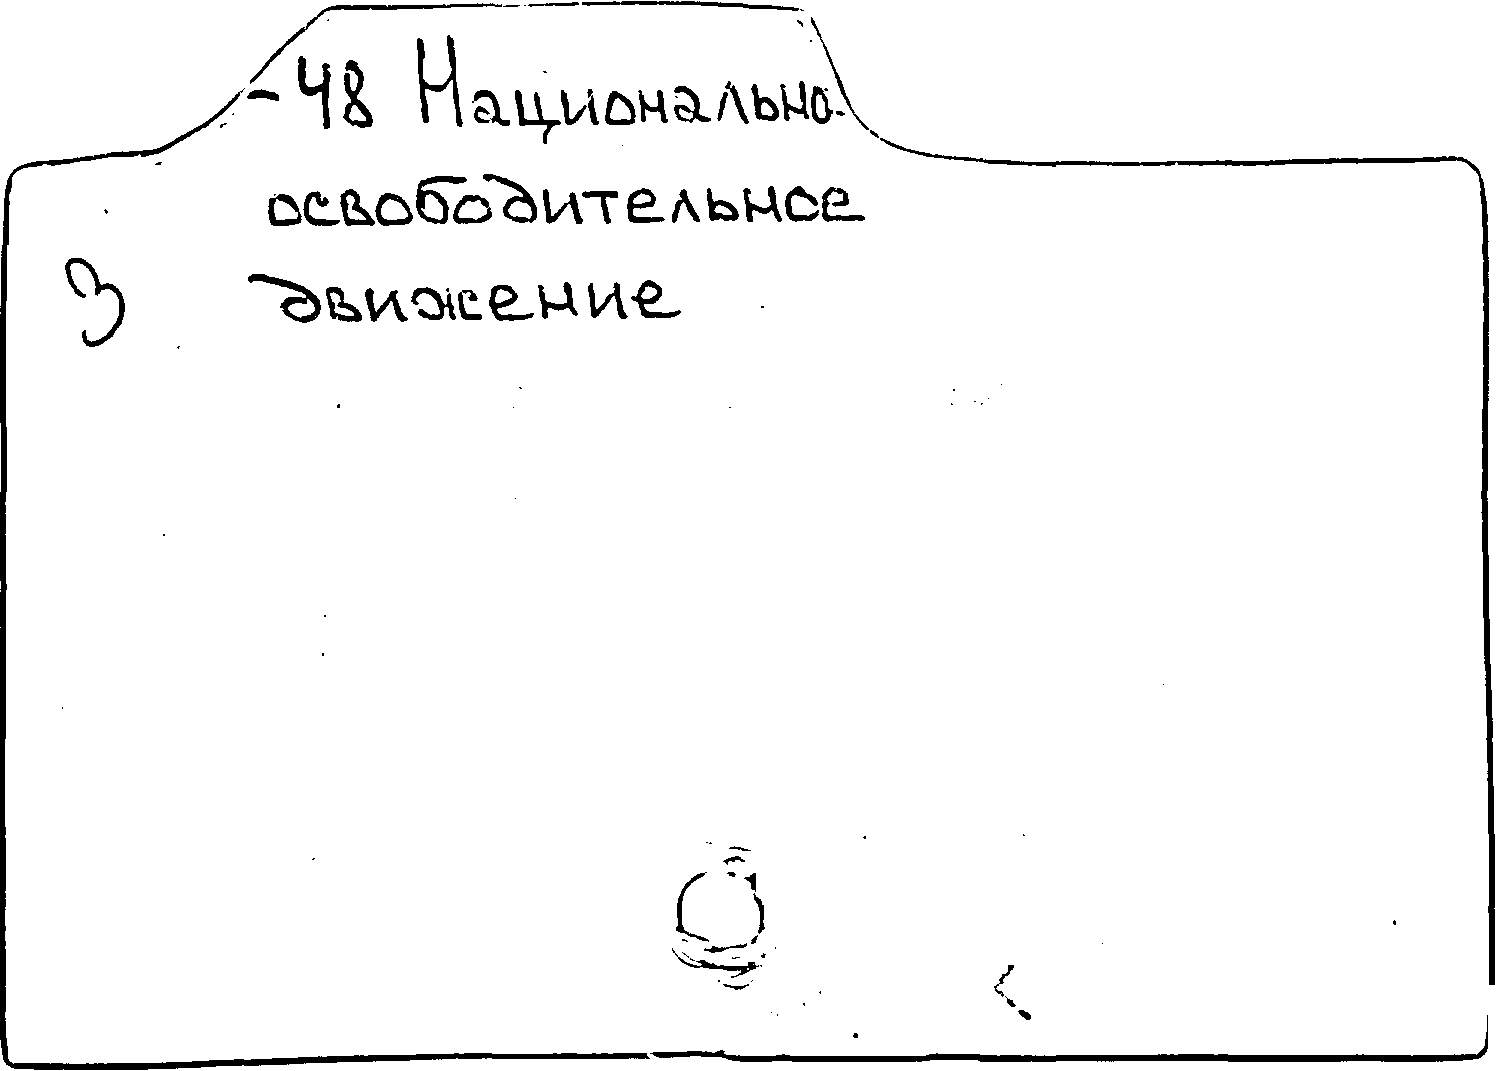 -48 Национально-
освободительное
3 движение